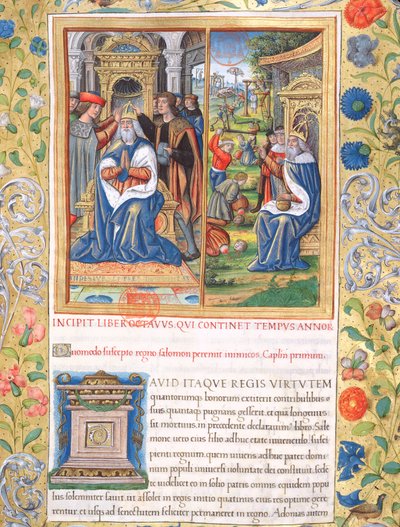 INCIPIT LIBER OCTAVUS QVI CONTINET TEMPVS ANNOR
Quomodo suscepto regno salomon peremit inimicos. Caplm primum.
DAVID ITAQVE REGIS VIRTVTEM
quantorumq; bonorum extiterit contribulibus
suis, quantaq; pugnans gesserit, et q longeuus
sit mortuus, in precedente declaratum libro. Salo
mone uero eius filio adhuc etate iuuenculo susci
piente regnum, quem uiuens adhuc pater domi
num populi uniuersi uoluntate dei constituit, sede
te uidelicet eo in solio patris in regno, eidem popu
lus solemniter faciunt, ut assolet in regis initio quatinus eius res optime gere
rentur, et usq; ad senectutem feliciter permaneret in regno. Adomas autem